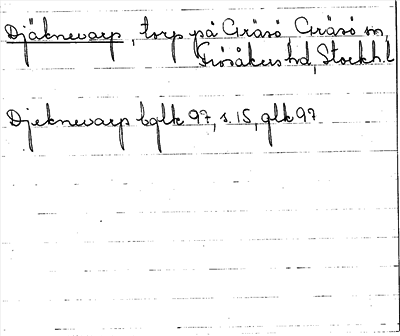 Djäknevarp, torp på Gräsö Gräsö sn,
Frösåkers hd, Stockh.l
Djeknevarp bglk 97, s. 15, glk 97